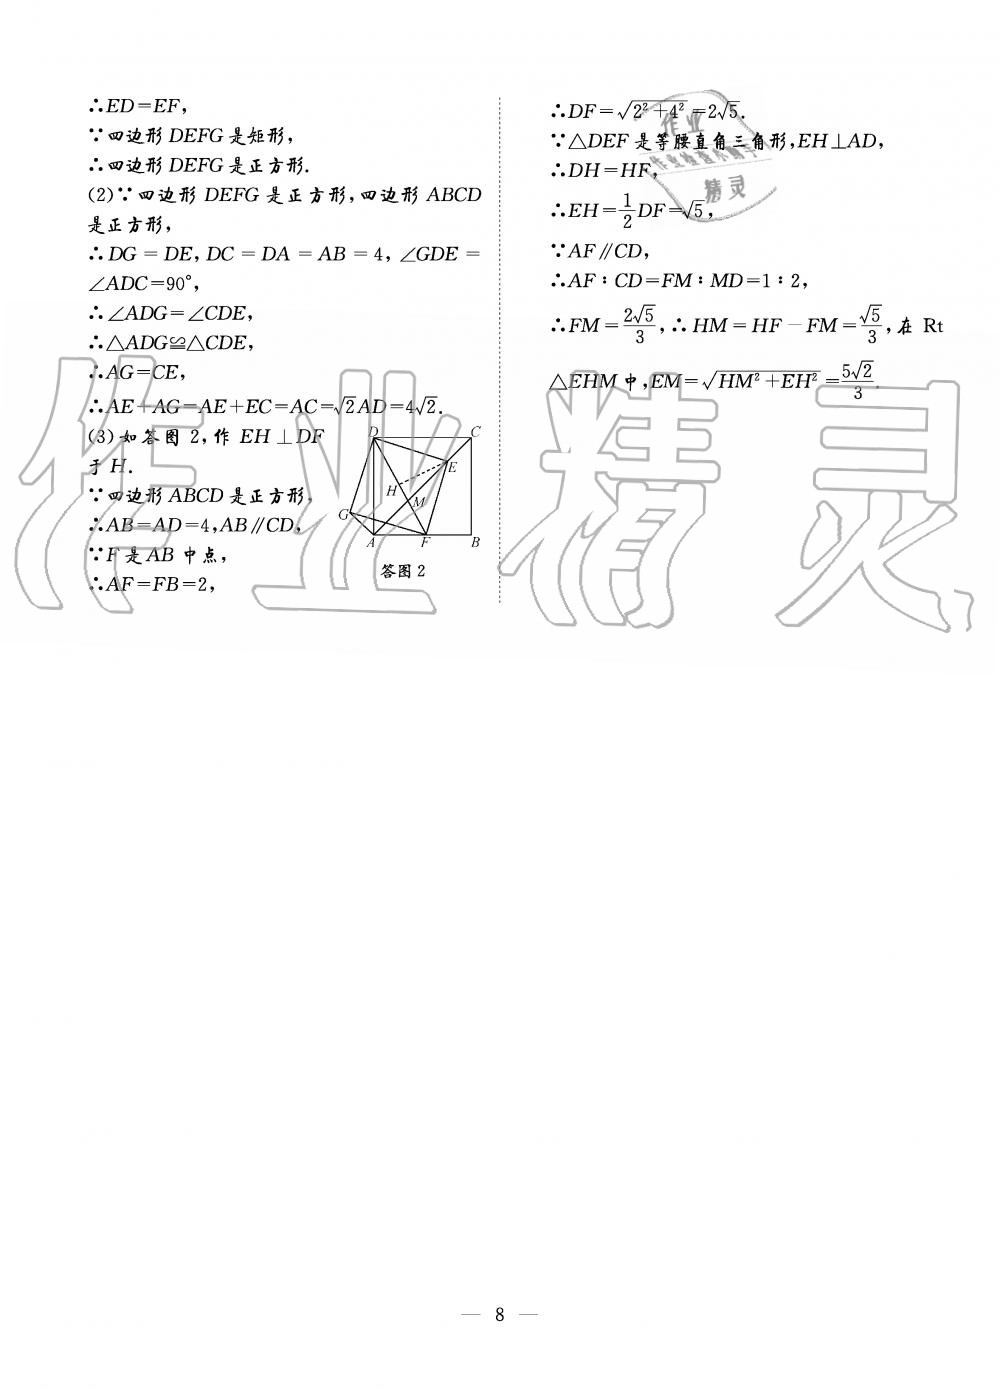 ∴ED=EF,
∵四边形 DEFG 是矩形,
∴四边形 DEFG 是正方形.
(2)∵四边形 DEFG 是正方形,四边形 ABCD
是正方形,
∴DG=DE,DC=DA=AB=4,∠GDE=
∠ADC=90°,
∴∠ADG=∠CDE,
∴△ADG≌△CDE,
∴AG=CE,
∴AE+AG=AE+EC=AC=√2AD=4√2.
(3)如答图 2,作 EH⊥DF
于 H.
∵四边形 ABCD 是正方形,
∴AB=AD=4,AB∥CD,
∵F 是 AB 中点,
∴AF=FB=2,
D C
E
H
M
G
A F B
答图 2
∴DF=√(2²+4²)=2√5.
∵△DEF 是等腰直角三角形,EH⊥AD,
∴DH=HF,
∴EH=1/2DF=√5,
∵AF∥CD,
∴AF∶CD=FM∶MD=1∶2,
∴FM=2√5/3,∴HM=HF-FM=√5/3,在 Rt
△EHM 中,EM=√(HM²+EH²)=5√2/3.
作业
作业检查小助手
精灵
作业精灵
— 8 —